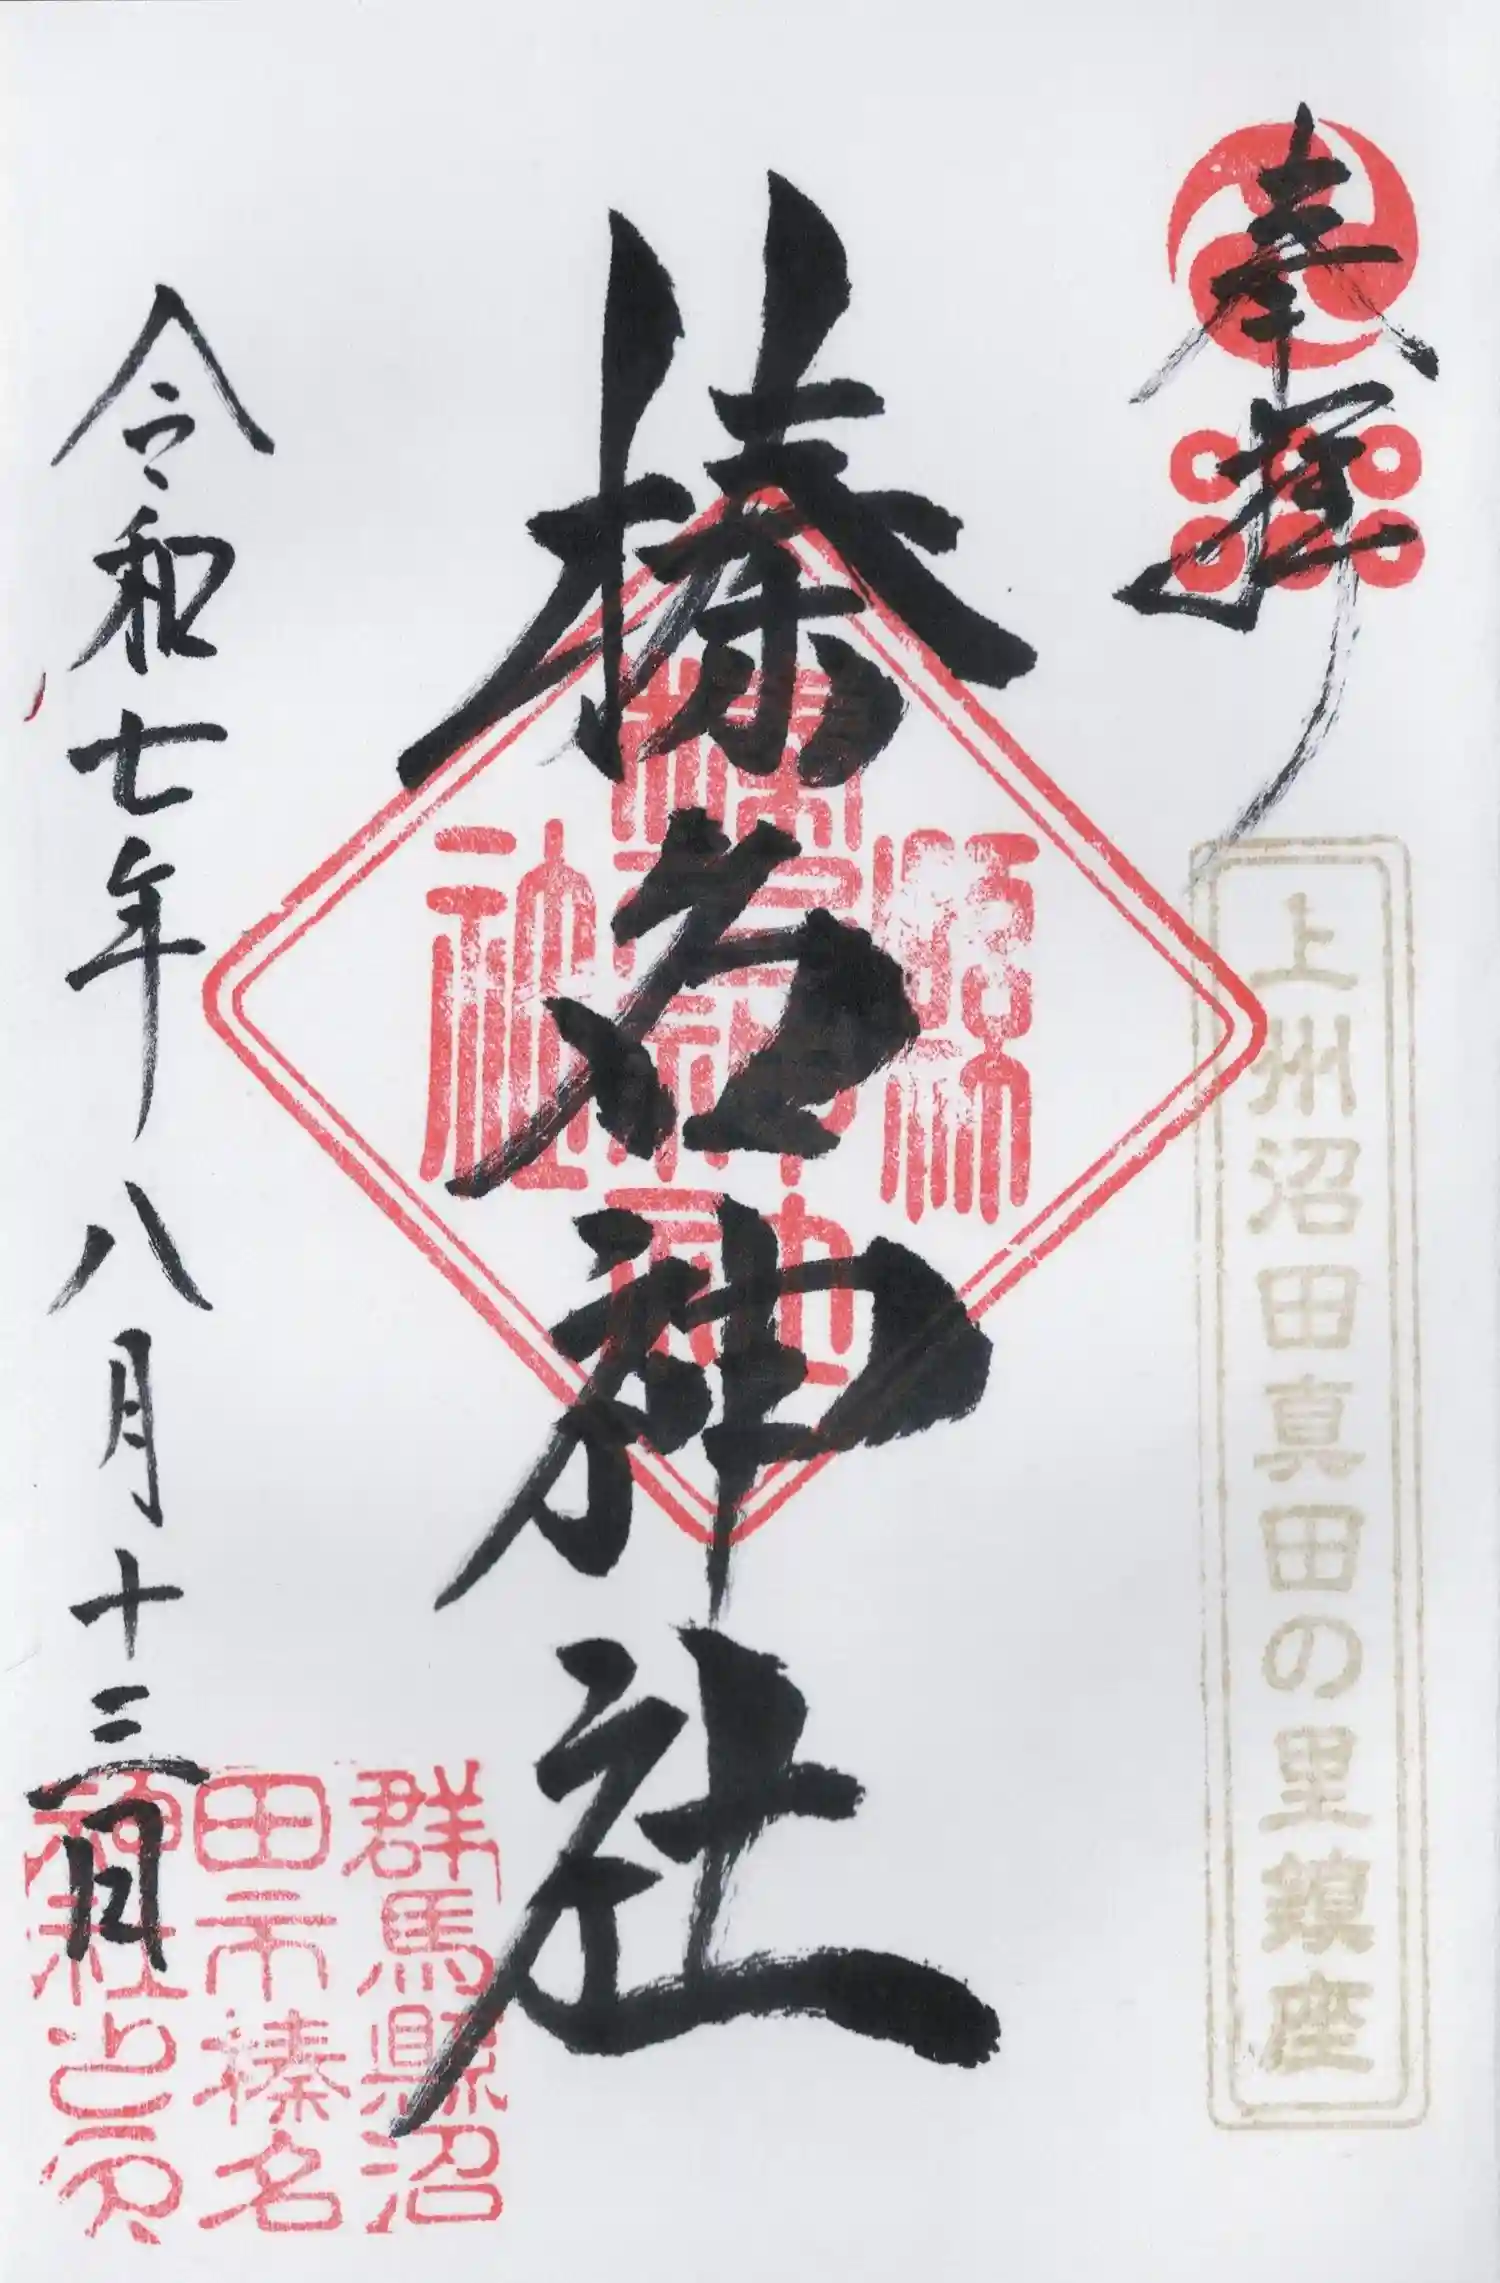 奉拝
上州沼田真田の里鎮座
榛名神社
縣社
榛名神社
令和七年八月十三日
群馬縣沼
田市榛名
神社之印